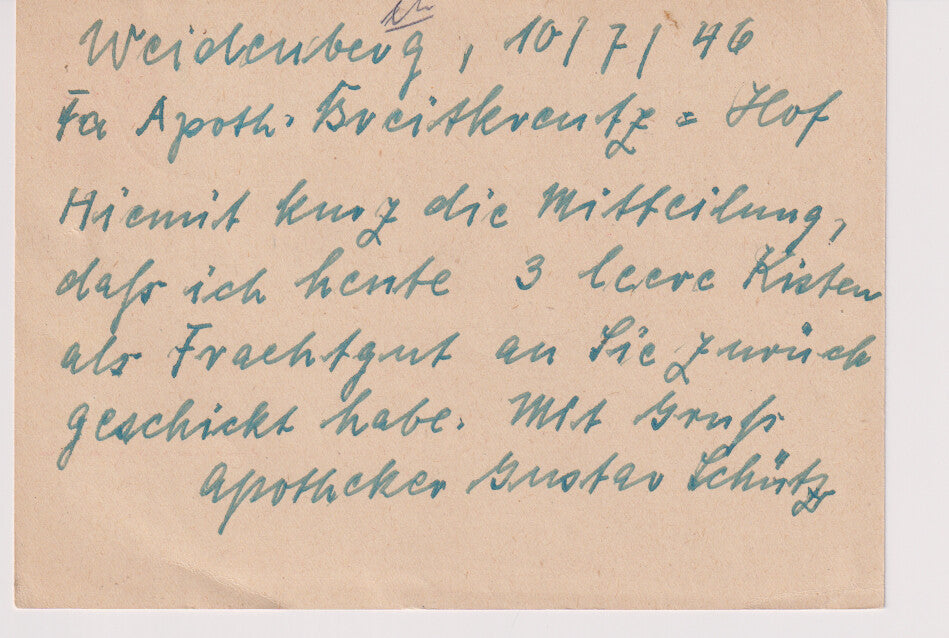 Weidenberg, 10/7/46
Fa Apoth. Breitkreutz = Hof
Hiemit kurz die Mitteilung,
daß ich heute 3 leere Kisten
als Frachtgut an Sie zurück
geschickt habe. Mit Gruß
Apotheker Gustav Schütz